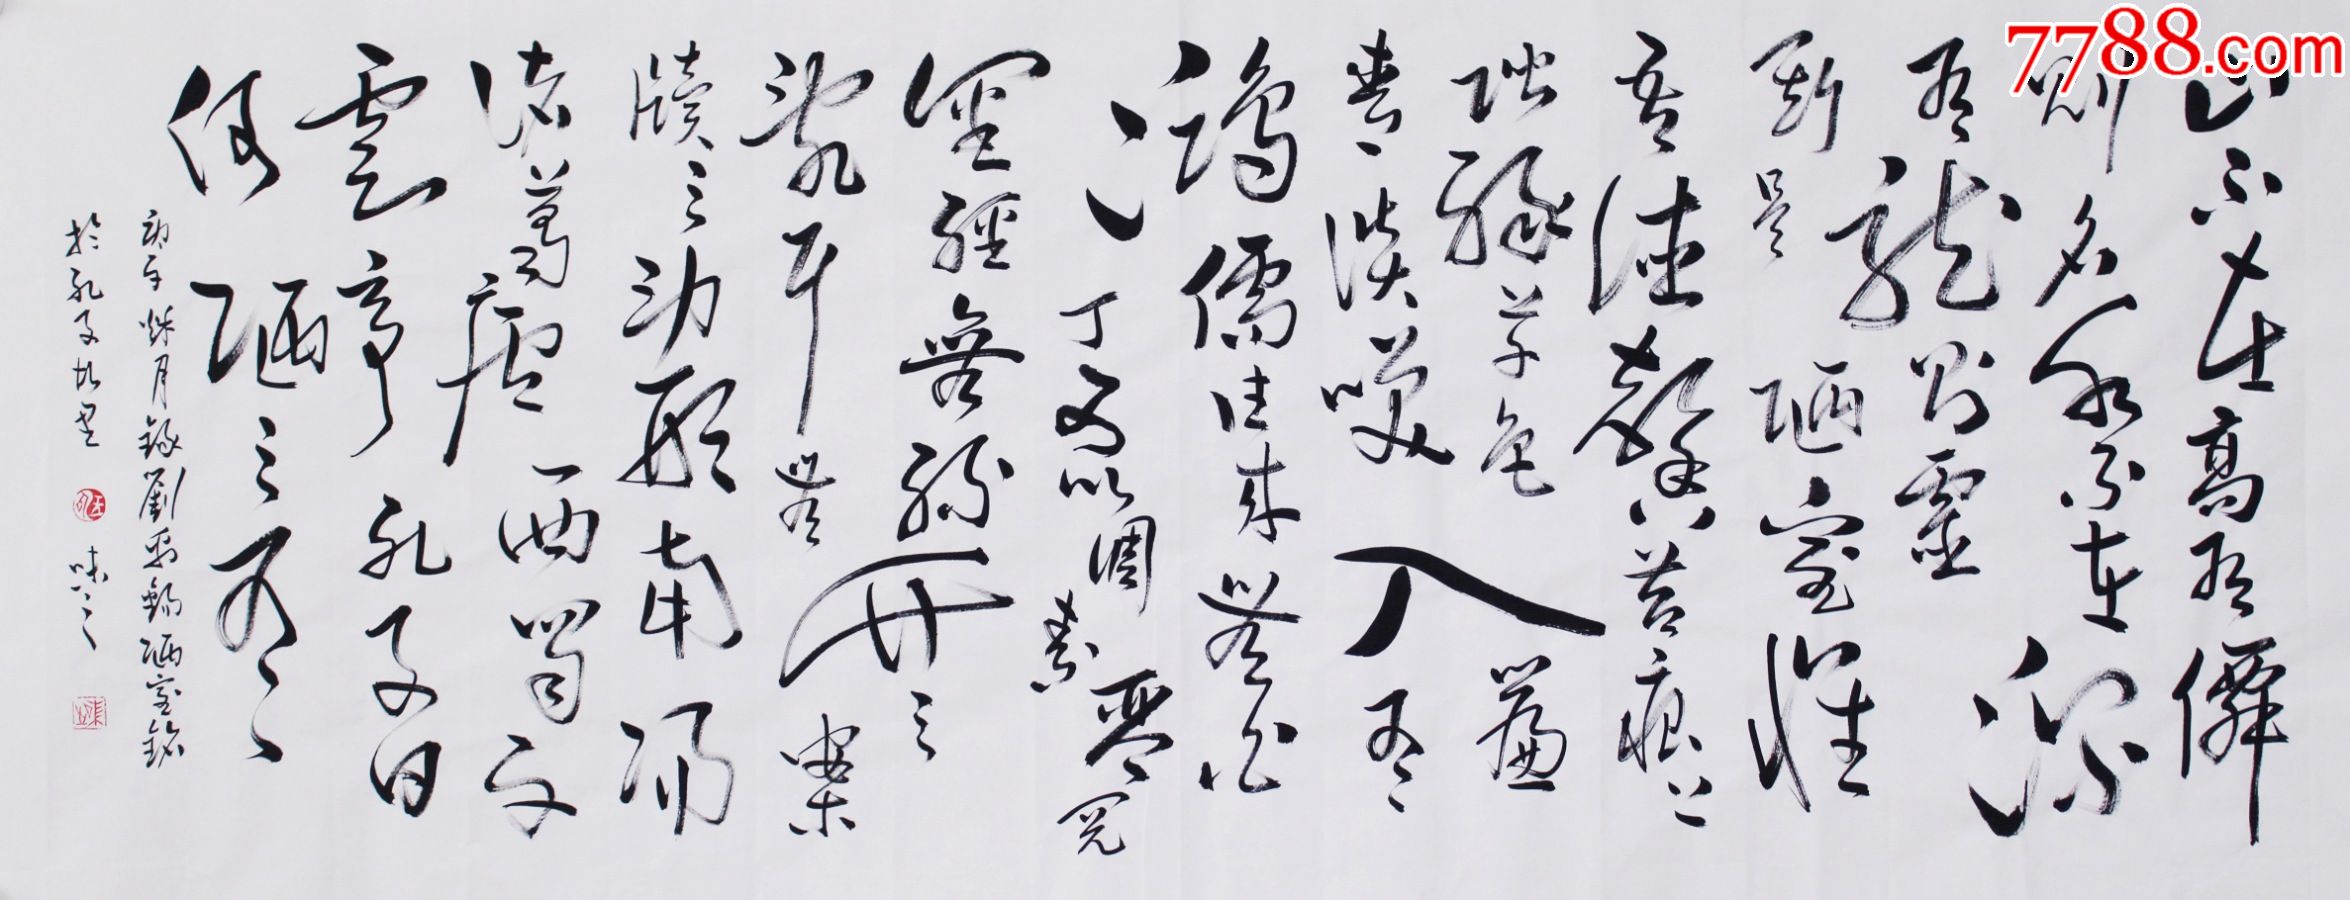 7788.com
山不在高有僊
則名水不在深
有龍則靈
斯是陋室惟
吾德馨苔痕上
階緑草色入簾
青談笑有
鴻儒往来無白
丁可以調素琴閱
金經無絲竹之
亂耳無案
牘之勞形南陽
諸葛廬西蜀子
雲亭孔子曰
何陋之有
秋月錄劉禹錫陋室銘
於孔子故里 味之